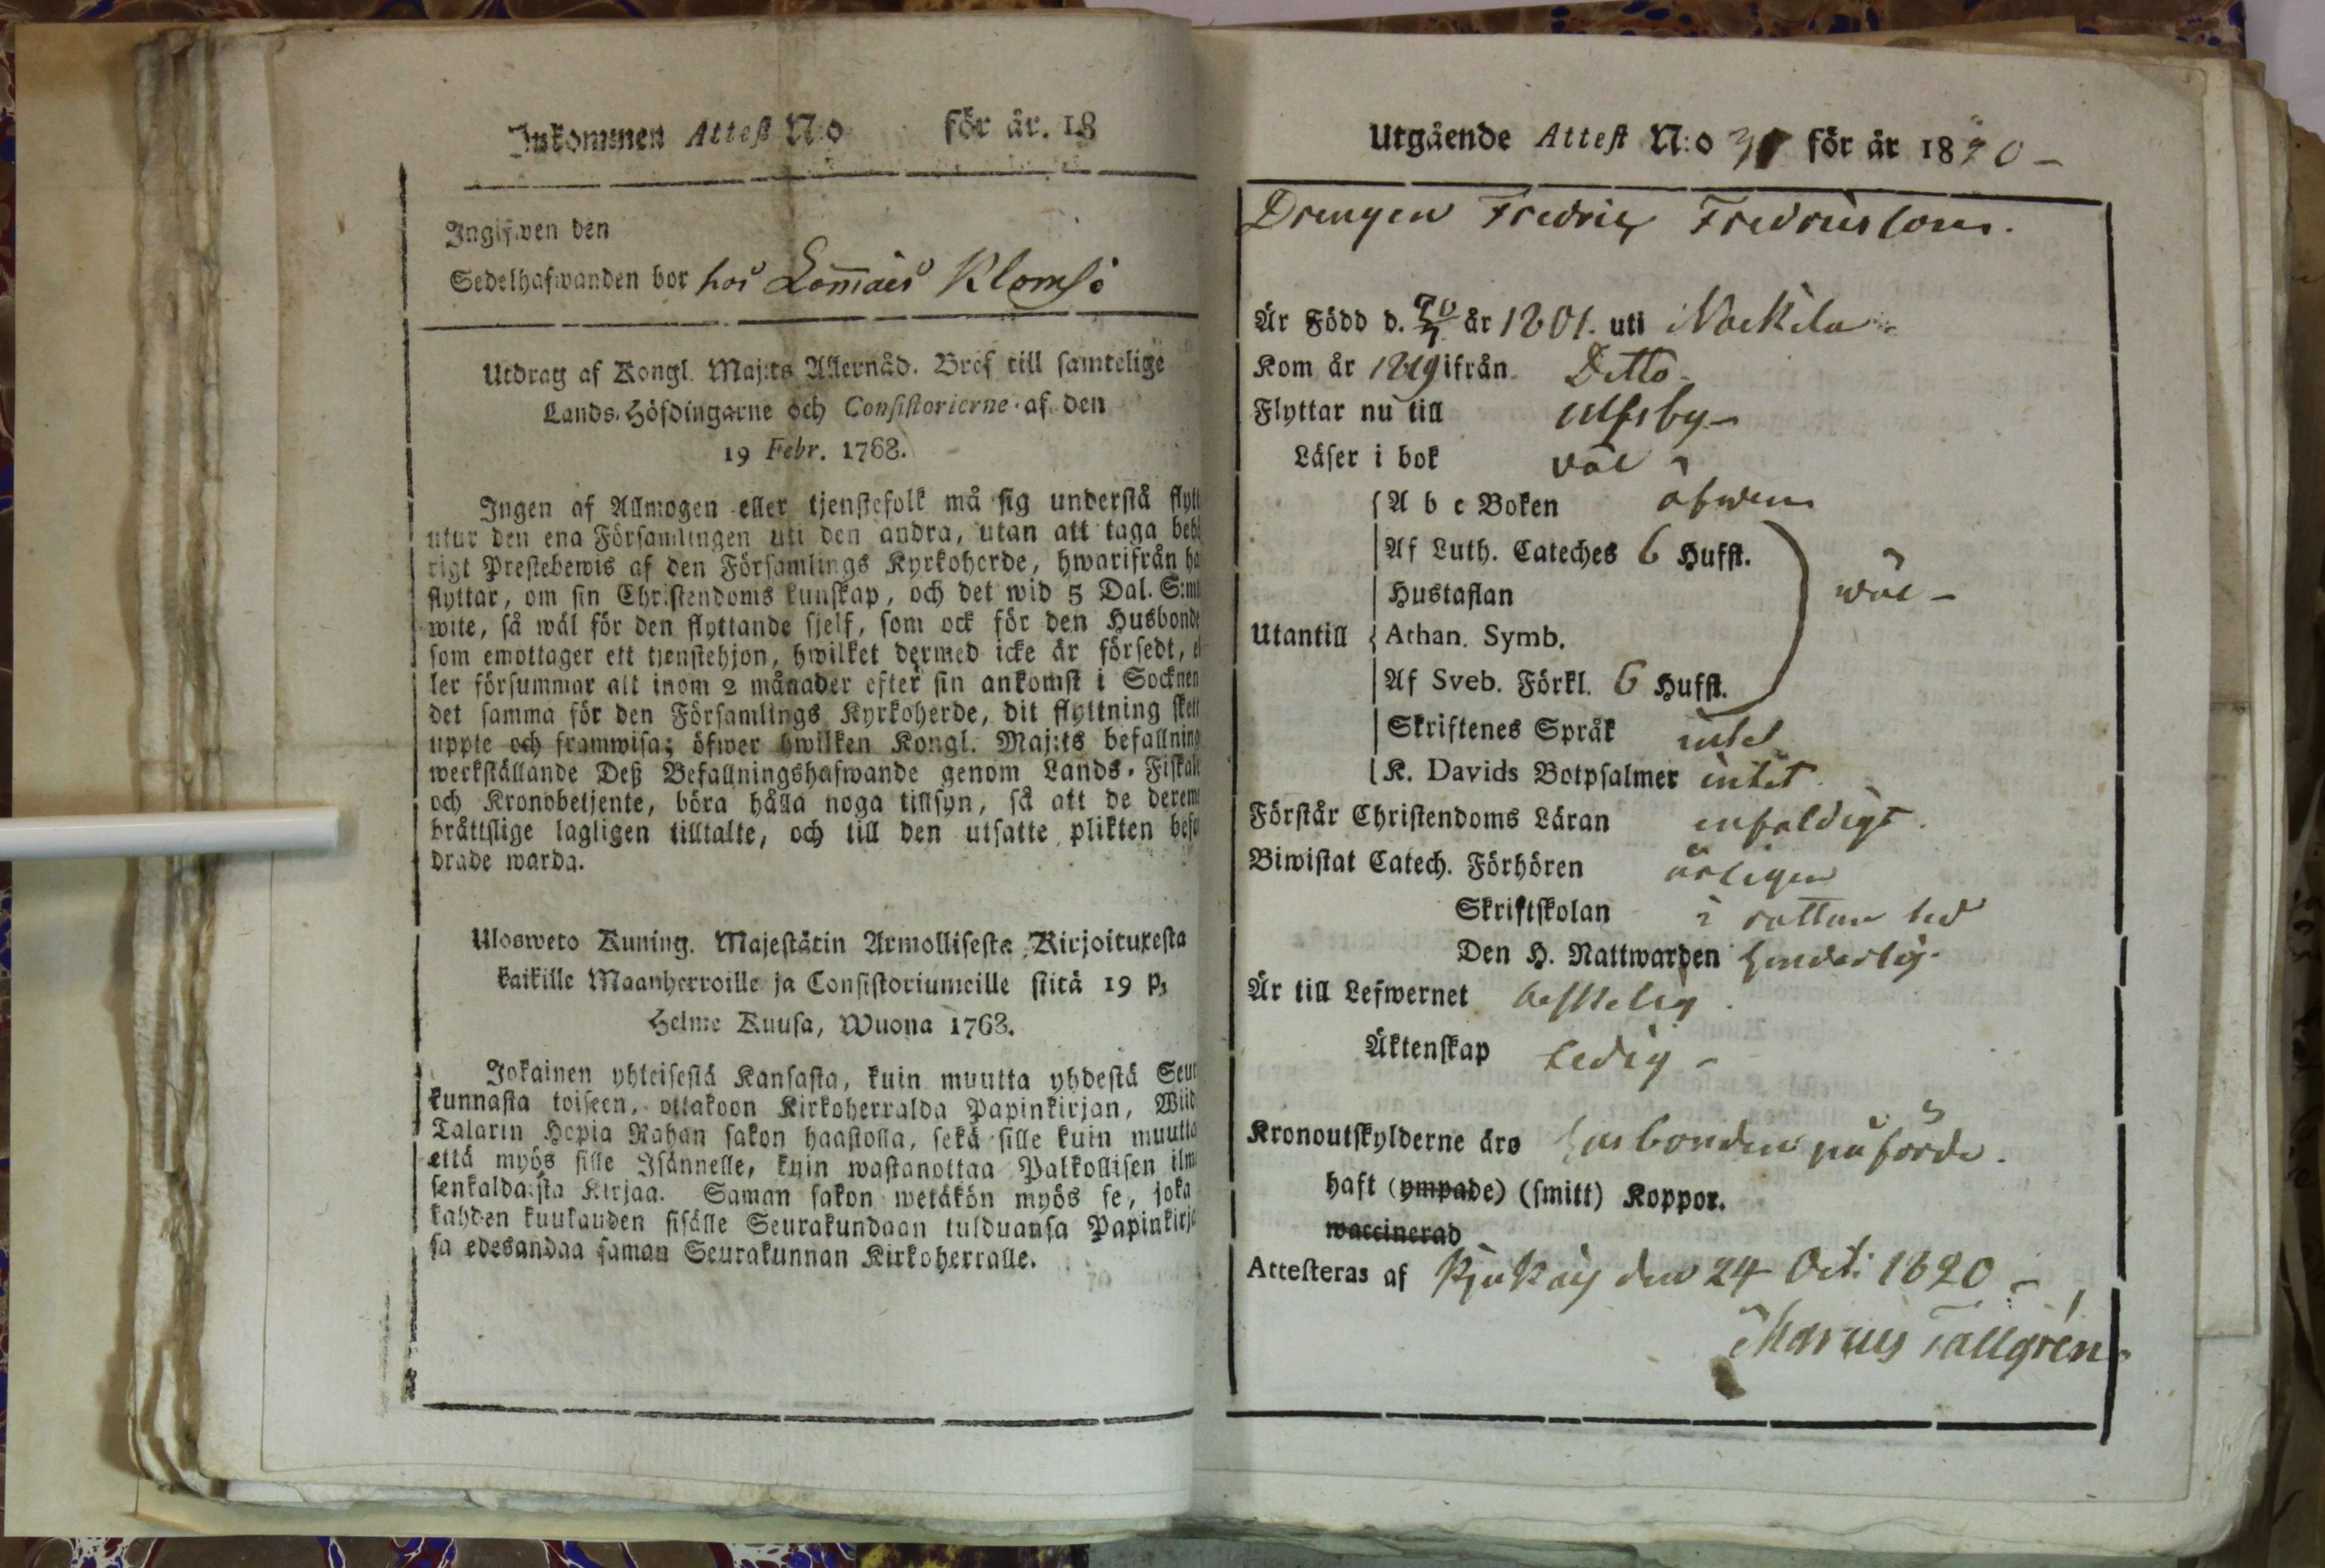 Inkommen Attest N:o för år. 18
Ingifwen den
Sedelhafwanden bor hos
Utdrag af Kongl. Maj:ts Allernåd. Bref till samtelige
Lands-Höfdingarne och Consistorierne af den
19 Febr. 1768.
Ingen af Allmogen eller tjenstefolk må sig understå flytt
utur den ena Församlingen uti den andra, utan att taga behö
rigt Prestebewis af den Församlings Kyrkoherde, hwarifrån ha
flyttar, om sin Christendoms kunskap, och det wid 5 Dal. S:mt
wite, så wäl för den flyttande sjelf, som ock för den Husbonde
som emottager ett tjenstehjon, hwilket dermed icke är försedt, el
ler försummar att inom 2 månader efter sin ankomst i Socknen
det samma för den Församlings Kyrkoherde, dit flyttning skett
uppte och framwisa; öfwer hwilken Kongl. Maj:ts befallning
werkställande Deß Befallningshafwande genom Lands-Fiskale
och Kronobetjente, böra hålla noga tillsyn, så att de derem
bråttslige lagligen tilltalte, och till den utsatte plikten befo
drade warda.
Ulosweto Kuning. Majestätin Armollisesta Kirjoituxesta
kaikille Maanherroille ja Consistoriumeille siitä 19 p.
Helme Kuusa, Wuona 1768.
Jokainen yhteisestä Kansasta, kuin muutta yhdestä Seur
kunnasta toiseen, ottakoon Kirkoherralda Papinkirjan, Wiid
Talarin Hopia Rahan sakon haastolla, sekä sille kuin muutta
että myös sille Isännelle, kuin wastanottaa Palkollisen ilm
senkaldaista Kirjaa. Saman sakon wetäkön myös se, joka
kahden kuukauden sisälle Seurakundaan tulduansa Papinkirja
sa edesandaa saman Seurakunnan Kirkoherralle.
Utgående Attest N:o för år 1820 –
Drengen Fredric Fredricsson.
Är Född d. 20/7 år 1801. uti Nackila
Kom år 1819 ifrån Ditto
Flyttar nu till Ulfsby –
Läser i bok väl
A b c Boken äfwen
Af Luth. Cateches 6 Hufst.
Hustaflan wäl –
Utantill Athan. Symb.
Af Sveb. Förkl. 6 Hufst.
Skriftenes Språk intet
K. Davids Botpsalmer intet.
Förstår Christendoms Läran enfaldigt.
Biwistat Catech. Förhören årligen
Skriftskolan i rättan tid
Den H. Nattwarden
Är till Lefwernet beskelig.
Äktenskap Ledig –
Kronoutskylderne äro husbonden påförde.
haft (ympade) (smitt) Koppor.
waccinerad
Attesteras af Kjukais den 24 Oct: 1820 –
Marcus Tallgren